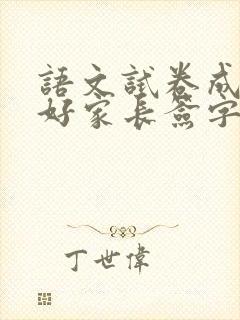 語文試卷成
好家長簽字
丁世偉